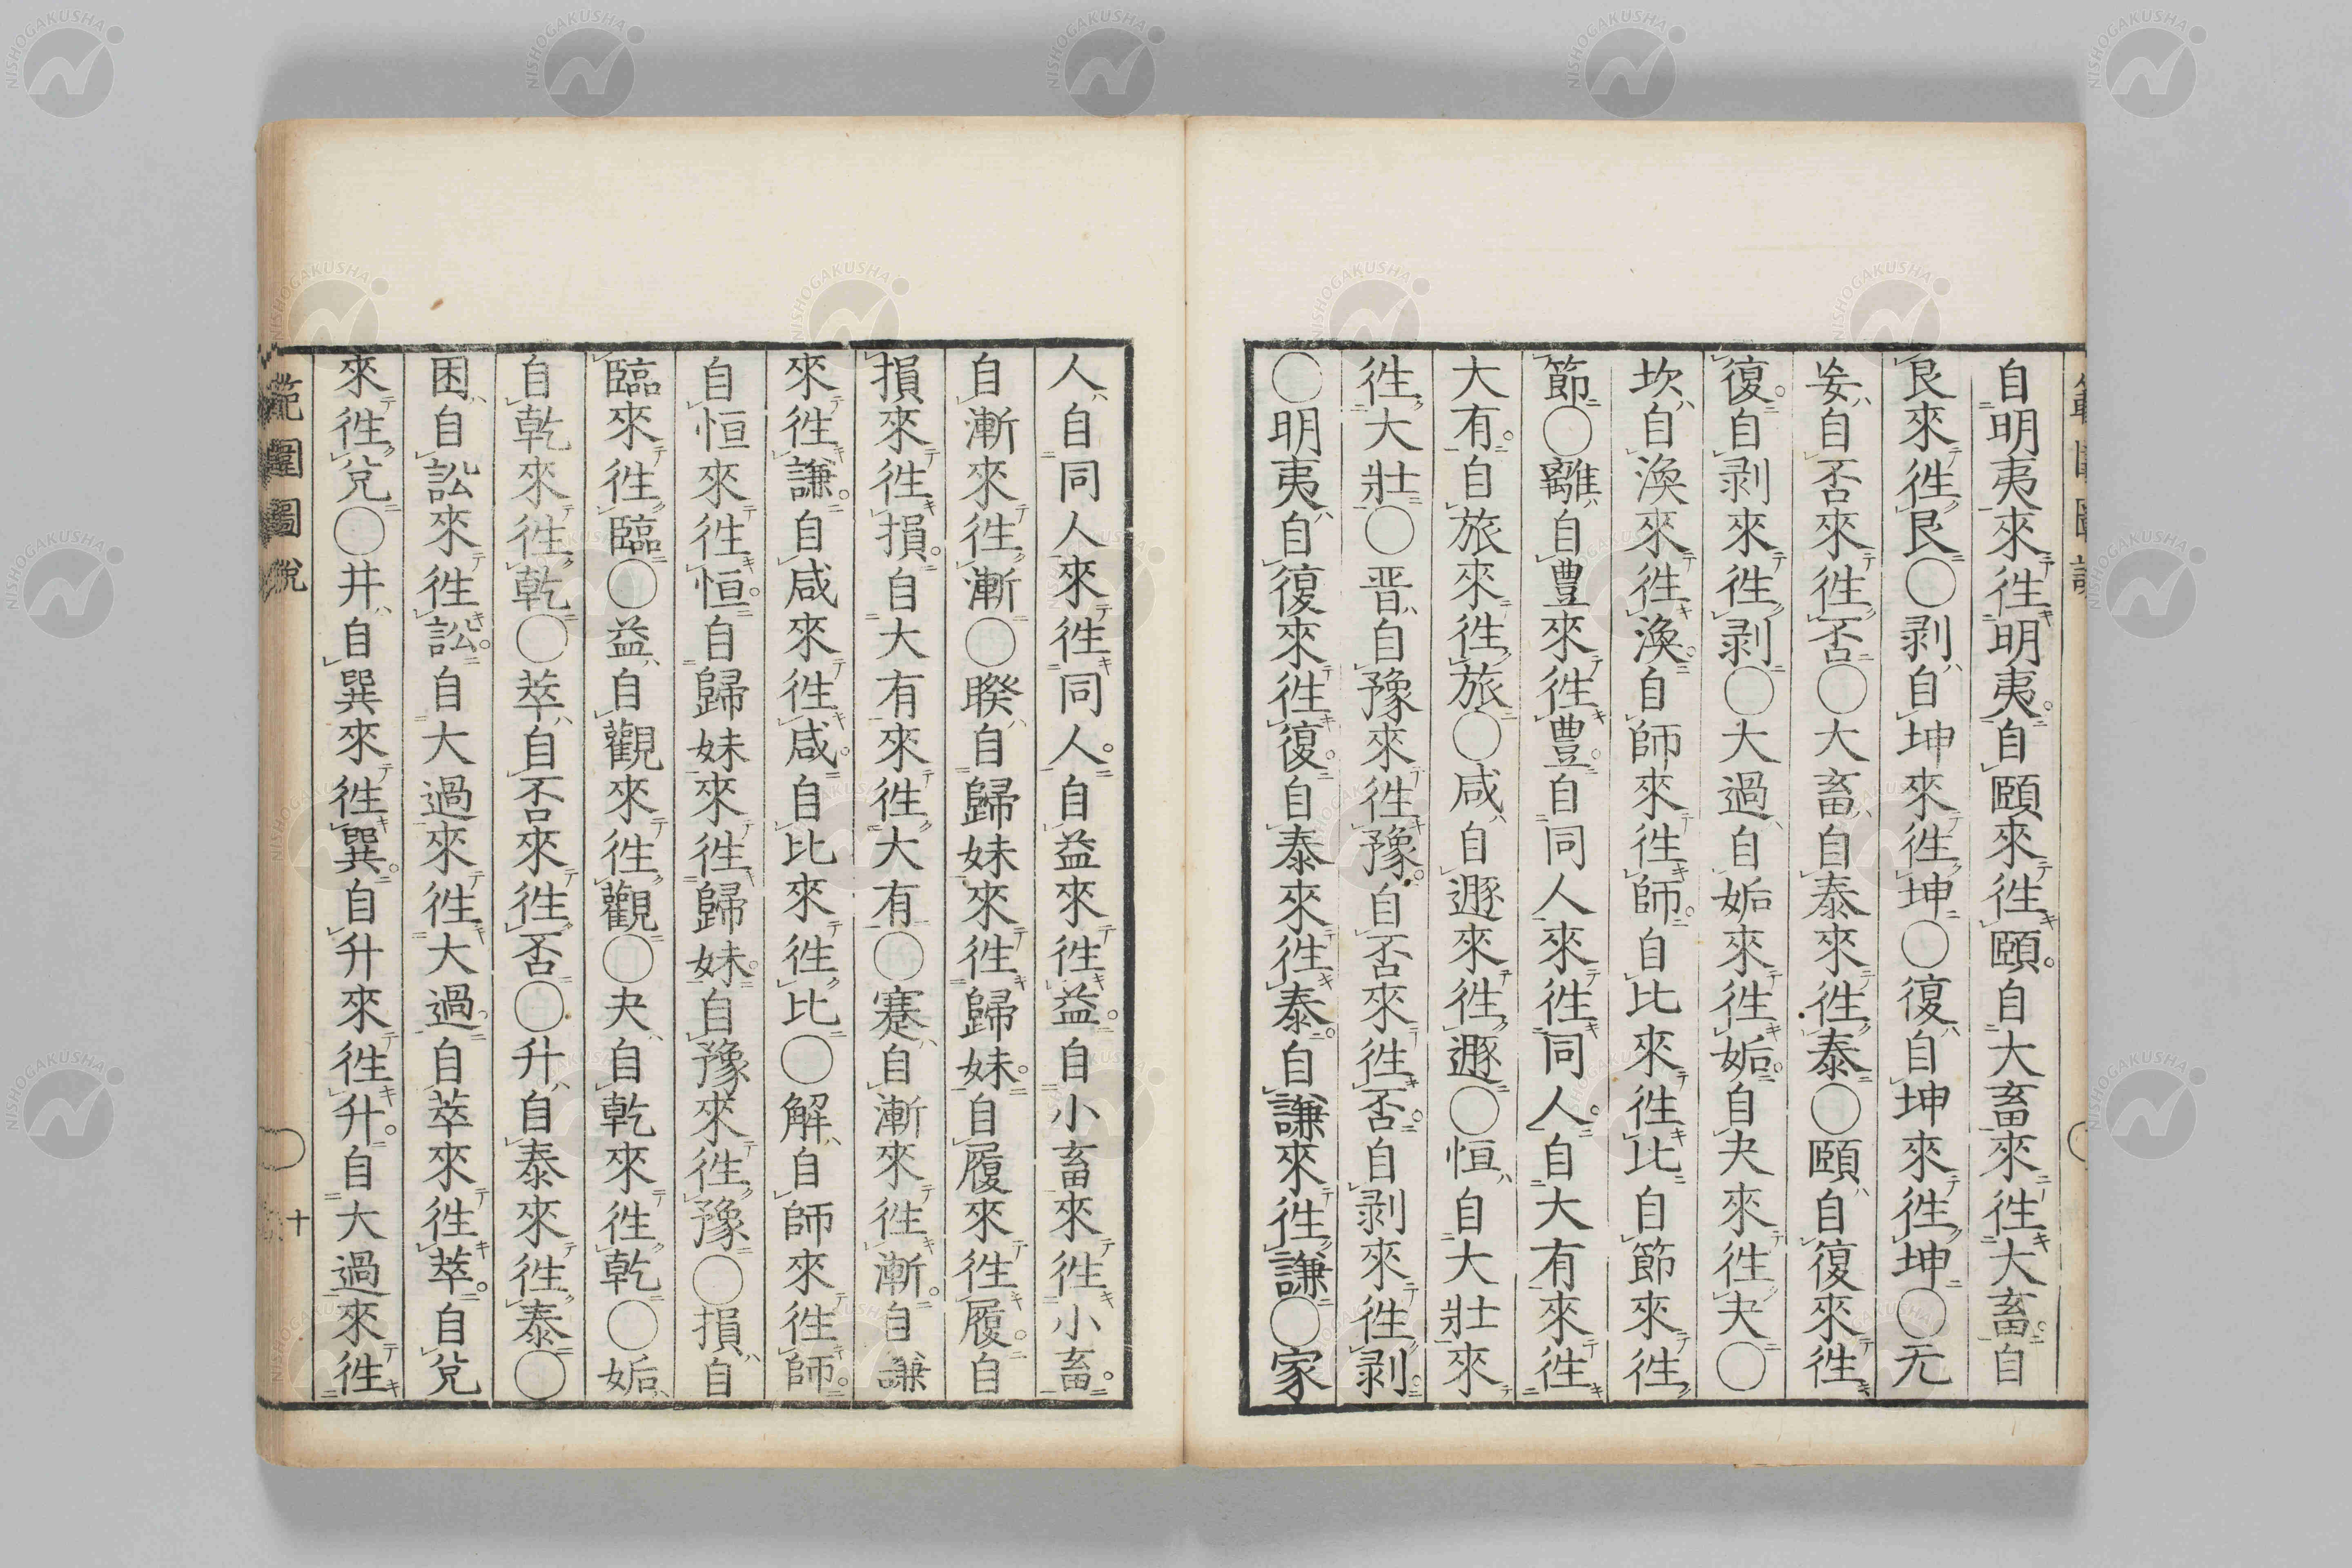 自明夷來徃明夷自頤來徃頤自大畜來徃大畜自
艮來徃艮○剥自坤來徃坤○復自坤來徃坤○无
妄自否來徃否○大畜自泰來徃泰○頤自復來徃
復自剥來徃剥○大過自姤來徃姤自夬來徃夬○
坎自渙來徃渙自師來徃師自比來徃比自節來徃
節○離自豊來徃豊自同人來徃同人自大有來徃
大有自旅來徃旅○咸自遯來徃遯○恒自大壯來
徃大壯○晋自豫來徃豫自否來徃否自剥來徃剥
○明夷自復來徃復自泰來徃泰自謙來徃謙○家
人自同人來徃同人自益來徃益自小畜來徃小畜
自漸來徃漸○睽自歸妹來徃歸妹自履來徃履自
損來徃損自大有來徃大有○蹇自漸來徃漸自謙
來徃謙自咸來徃咸自比來徃比○解自師來徃師
自恒來徃恒自歸妹來徃歸妹自豫來徃豫○損自
臨來徃臨○益自觀來徃觀○夬自乾來徃乾○姤
自乾來徃乾○萃自否來徃否○升自泰來徃泰○
困自訟來徃訟自大過來徃大過自萃來徃萃自兌
來徃兌○井自巽來徃巽自升來徃升自大過來徃
範圍圖說
十
NISHOGAKUSHA